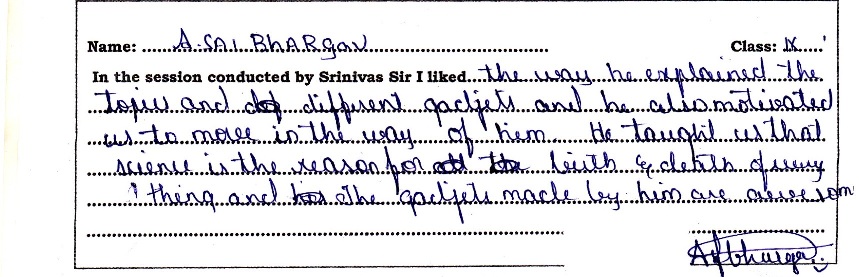 Name: A.SAI.BHARGAV Class: IX
In the session conducted by Srinivas Sir I liked the way he explained the
topics and different gadjets and he also motivated
us to move in the way of him He taught us that
science is the reason for the birth & death of every
thing and The gadjets made by him are awesom